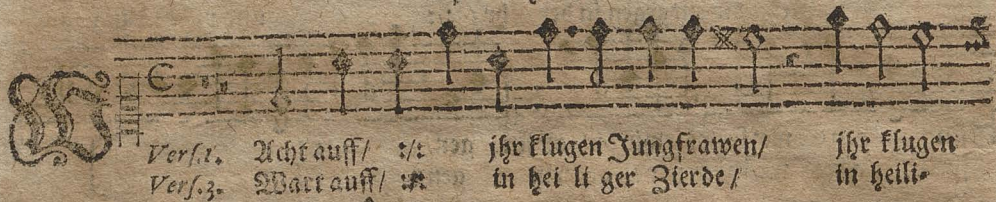 W
Vers.1. Acht auff/ :/: jhr klugen Jungfrawen/ jhr klugen
Vers.3. Wart auff/ :/: in hei li ger Zierde/ in heili-